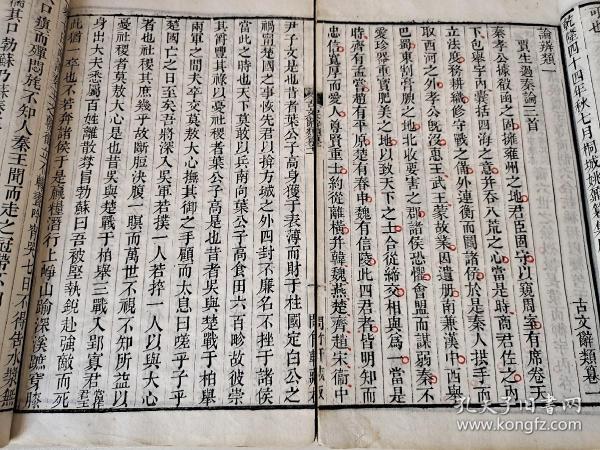 可也
乾隆四十四年秋七月桐城姚鼐纂集序
古文辭類纂一
論辨類一
賈生過秦論三首
秦孝公據殽函之固擁雍州之地君臣固守以窺周室有席卷天
下包舉宇內囊括四海之意并吞八荒之心當是時商君佐之內
立法度務耕織修守戰之備外連衡而鬭諸侯於是秦人拱手而
取西河之外孝公旣沒惠王武王蒙故業因遺册南兼漢中西舉
巴蜀東割膏腴之地北收要害之郡諸侯恐懼會盟而謀弱秦不
愛珍器重寶肥美之地以致天下之士合從締交相與爲一當是
時齊有孟嘗趙有平原楚有春申魏有信陵此四君者皆明知而
忠信寬厚而愛人尊賢重士約從離橫并韓魏燕楚齊趙宋衞中
尹子文是也昔者葉公子高身獲于表薄而財于柱國定白公之
禍甯楚國之事恢先君以揜方城之外四封不廉名不挫于諸侯
當此之時也天下莫敢以兵南向葉公子高食田六百畛故彼崇
其爵豐其祿以憂社稷者葉公子高是也昔者吳與楚戰于柏舉
兩軍之間夫卒交莫敖大心撫其御之手顧而太息曰嗟乎子乎
楚國亡之日至矣吾將深入吳軍若撲一人若捽一人以與大心
者也社稷其庶幾乎故斷脰決腹一瞑而萬世不視不知所益以
憂社稷者莫敖大心是也昔吳與楚戰于柏舉三戰入郢寡君
身出大夫悉屬百姓離散棼冒勃蘇曰吾被堅執銳赴強敵而死
此猶一卒也不若奔諸侯于是贏糧潛行上崢山踰深溪蹠穿膝
轉晝吟宵哭七日不得告水漿無
其口瘨而殫悶旄不知人秦王聞而走之冠帶不相
勃蘇乃蘇
孔夫子旧书网
www.kongfz.com